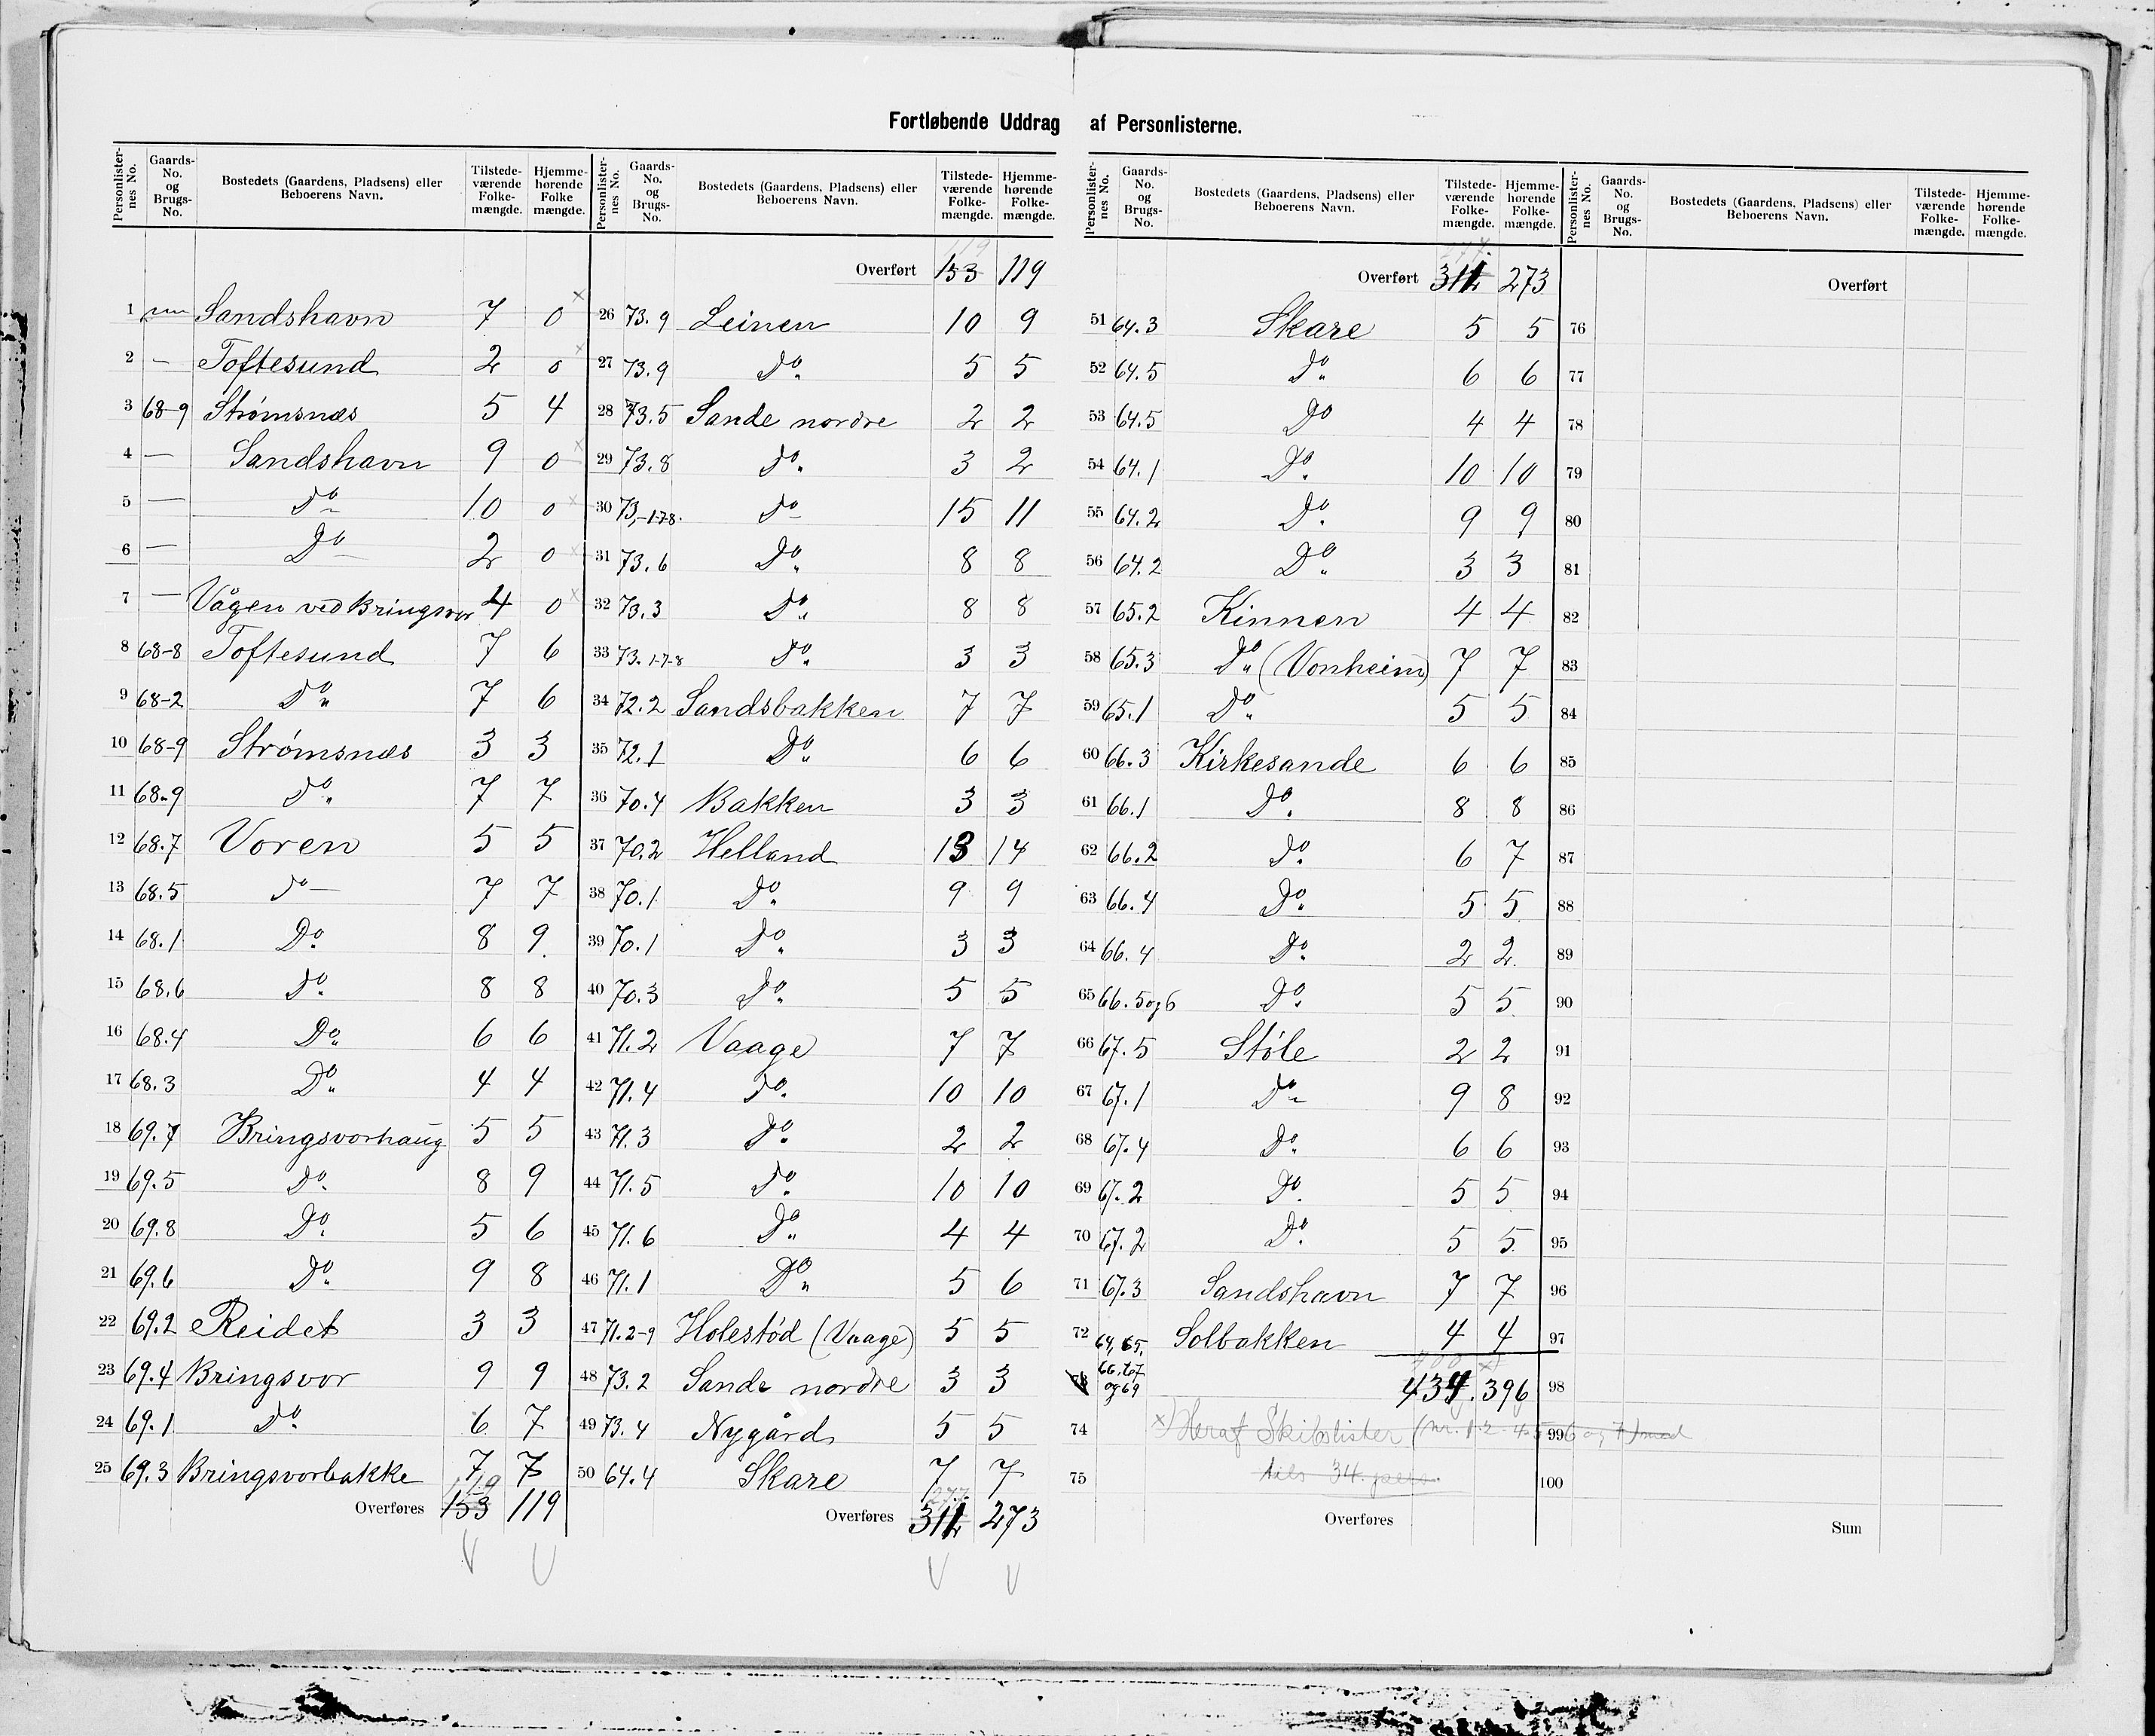 Fortløbende Uddrag af Personlisterne.
Personlisternes No. Gaards-No. og Brugs-No. Bostedets (Gaardens, Pladsens) eller Beboerens Navn. Tilstedeværende Folkemængde. Hjemmehørende Folke mængde.
1 Sandshavn 7 0 x
2 — Toftesund 2 0 x
3 68-9 Strømsnæs 5 4
4 — Sandshavn 9 0 x
5 — Do 10 0 x
6 — Do 2 0 x
7 — Vågen ved Bringsvor 4 0 x
8 68-8 Toftesund 7 6
9 68-2 Do 7 6
10 68-9 Strømsnæs 3 3
11 68-9 Do 7 7
12 68.7 Voren 5 5
13 68.5 do 7 7
14 68.1 Do 8 9
15 68.6 Do 8 8
16 68.4 Do 6 6
17 68.3 Do 4 4
18 69.7 Bringsvorhaug 5 5
19 69.5 Do 8 9
20 69.8 Do 5 6
21 69.6 Do 9 8
22 69.2 Reidet 3 3
23 69.4 Bringsvor 9 9
24 69.1 Do 6 7
25 69.3 Bringsvorbakke 7 7
119
Overføres 153 119
Personlisternes No. Gaards-No. og Brugs-No. Bostedets (Gaardens, Pladsens) eller Beboerens Navn. Tilstedeværende Folkemængde. Hjemmehørende Folkemængde.
119
Overført 153 119
26 73.9 Leinen 10 9
27 73.9 Do 5 5
28 73.5 Sande nordre 2 2
29 73.8 Do 3 2
30 73,-1-7-8. Do 15 11
31 73.6 Do 8 8
32 73.3 Do 8 8
33 73. 1-7-8 Do 3 3
34 72.2 Sandsbakken 7 7
35 72.1 Do 6 6
36 70.4 Bakken 3 3
37 70.2 Helland 13 14
38 70.1 Do 9 9
39 70.1 Do 3 3
40 70.3 Do 5 5
41 71.2 Vaage 7 7
42 71.4 Do 10 10
43 71.3 Do 2 2
44 71.5 Do 10 10
45 71.6 Do 4 4
46 71.1 Do 5 6
47 71.2-9 Holestød (Vaage) 5 5
48 73.2 Sande nordre 3 3
49 73.4 Nygård 5 5
50 64.4 Skare 7 7
277
Overføres 311 273
Personlisternes No. Gaards-No. og Brugs-No. Bostedets (Gaardens, Pladsens) eller Beboerens Navn. Tilstedeværende Folkemængde. Hjemmehørende Folkemængde.
277.
Overført 311 273
51 64.3 Skare 5 5
52 64.5 Do 6 6
53 64.5 Do 4 4
54 64.1 Do 10 10
55 64.2 Do 9 9
56 64.2 Do 3 3
57 65.2 Kinnen 4 4
58 65.3 Do (Vonheim) 7 7
59 65.1 Do 5 5
60 66.3 Kirkesande 6 6
61 66.1 Do 8 8
62 66.2 Do 6 7
63 66.4 Do 5 5
64 66.4 Do 2 2
65 66.5 og 6 Do 5 5
66 67.5 Støle 2 2
67 67.1 Do 9 8
68 67.4 Do 6 6
69 67.2 Do 5 5
70 67.2 Do 5 5
71 67.3 Sandshavn 7 7
72 64, 65, Solbakken 4 4
66, 67 400 x)
73 og 69 434. 396
74 x) Heraf Skibslister (nr. 1. 2. 4. 5. 6 og 7) med
75 tils 34 pers.
Overføres
Personlisternes No. Gaards-No. og Brugs-No. Bostedets (Gaardens, Pladsens) eller Beboerens Navn. Tilstedeværende Folkemængde. Hjemmehørende Folkemængde.
Overført
76
77
78
79
80
81
82
83
84
85
86
87
88
89
90
91
92
93
94
95
96
97
98
99
100
Sum